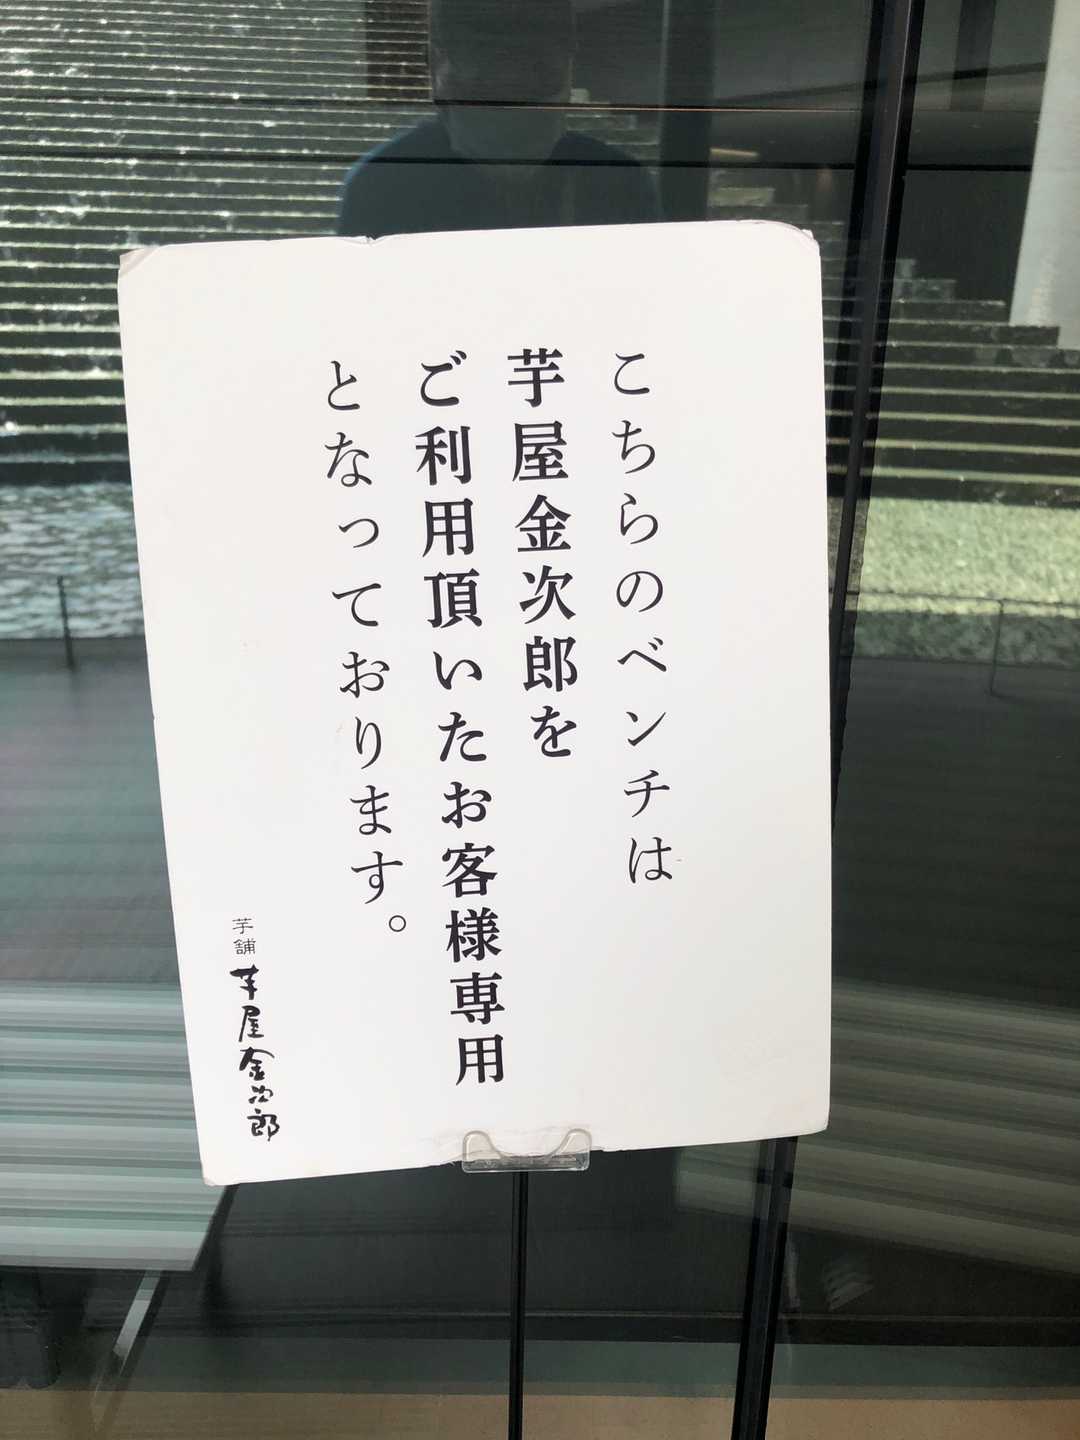 こちらのベンチは
芋屋金次郎を
ご利用頂いたお客様専用
となっております。
芋舗
芋屋金次郎